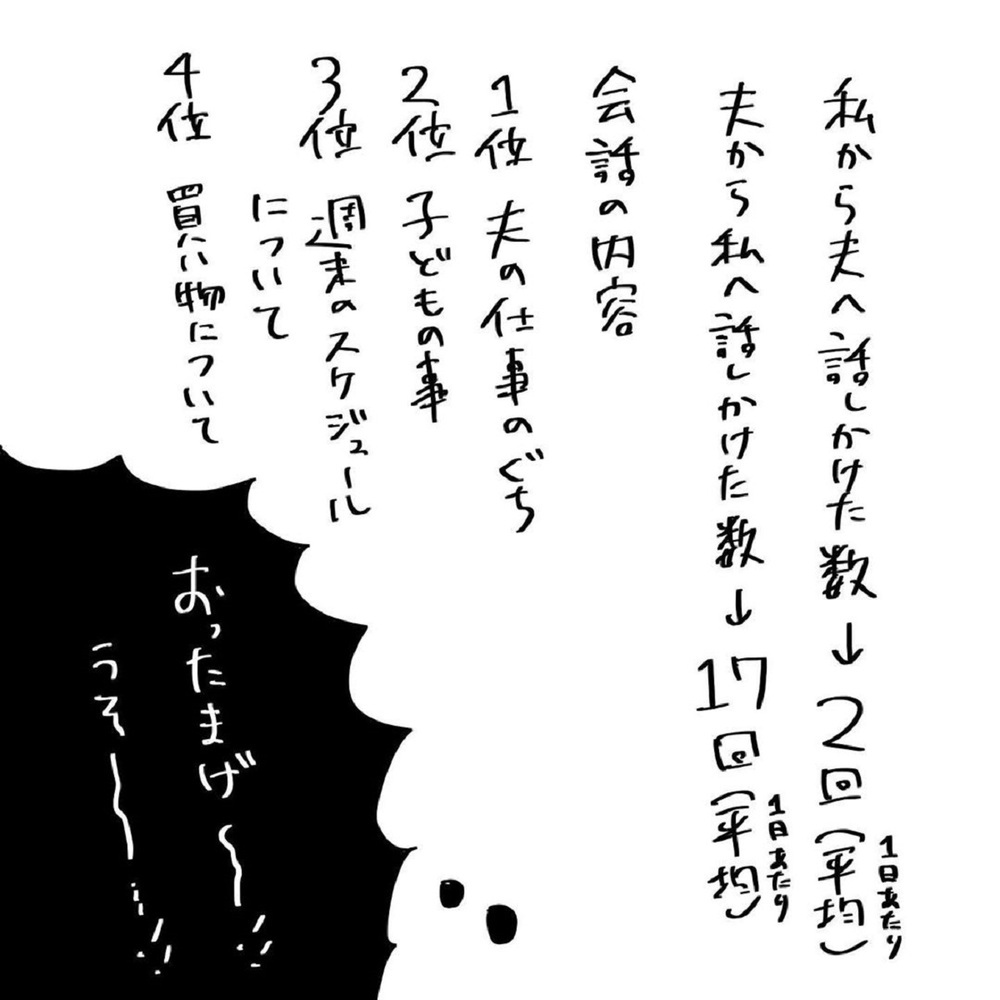 私から夫へ話しかけた数→2回(平均)
1日あたり
夫から私へ話しかけた数→17回(平均)
1日あたり
会話の内容
1位 夫の仕事のぐち
2位 子どもの事
3位 週末のスケジュール
について
4位 買い物について
おったまげ〜〜!!
うそ〜〜!!